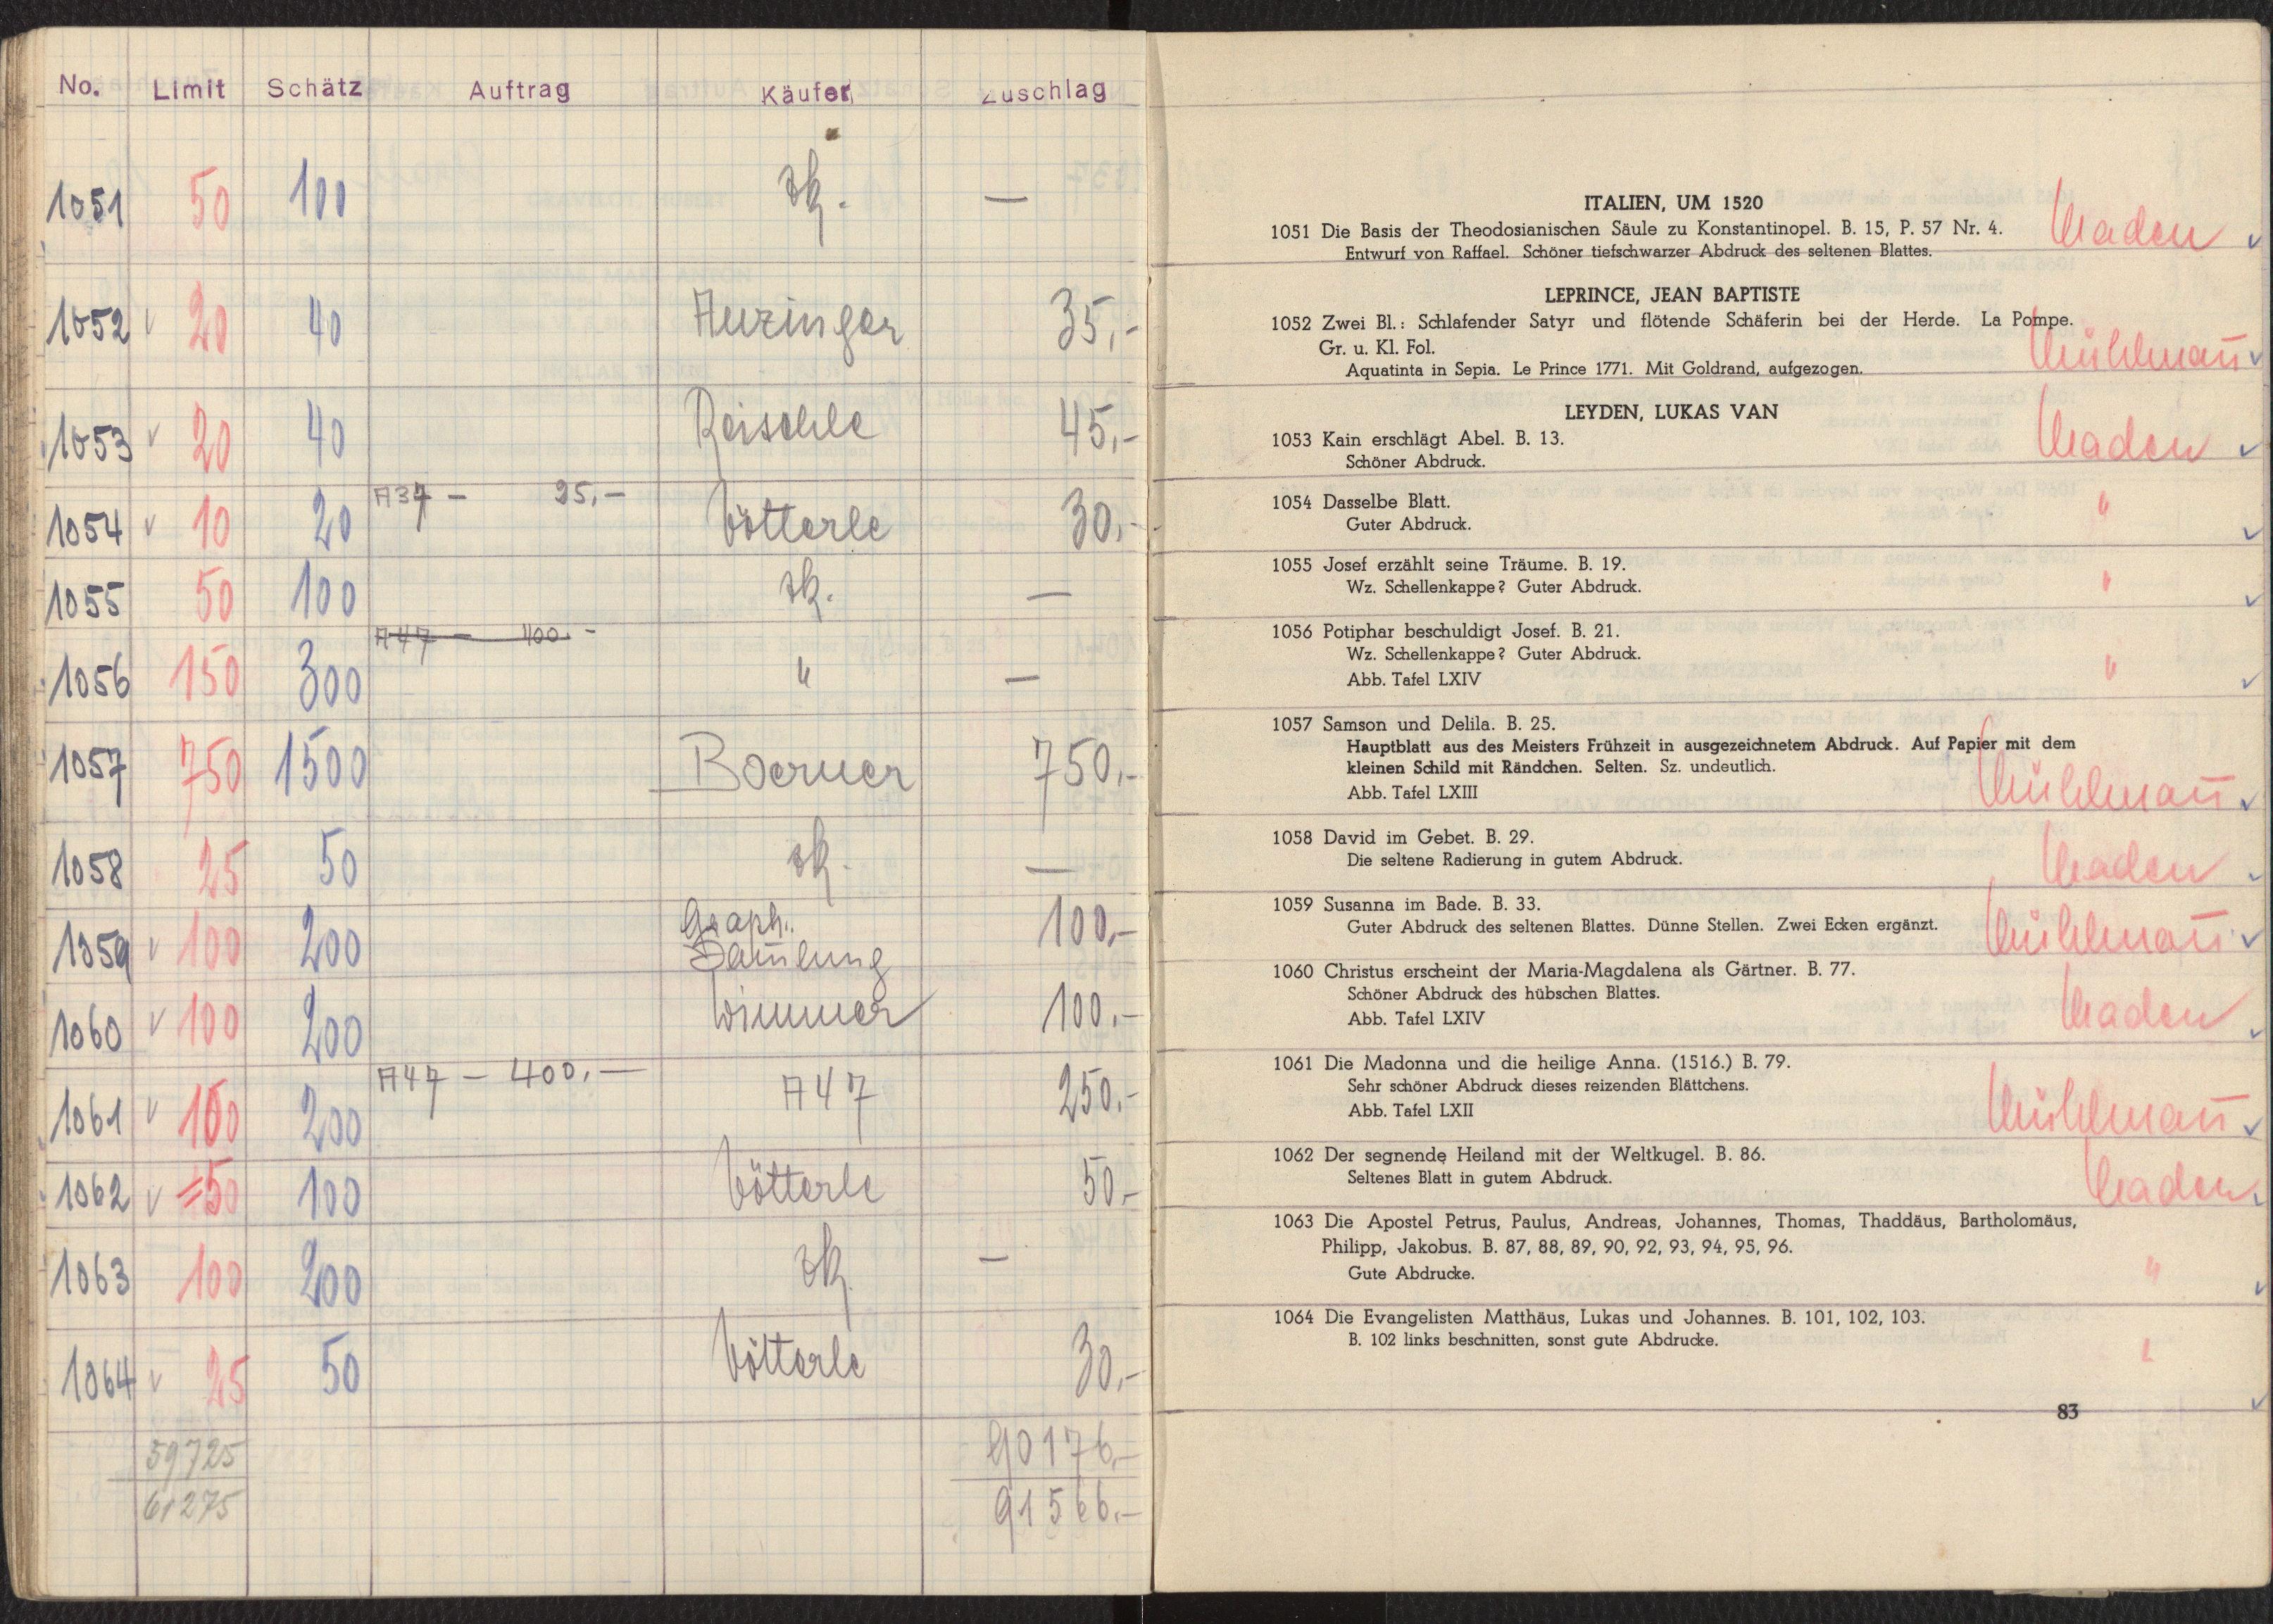 No. Limit Schätz Auftrag Käufer Zuschlag
1051 50 100 zk. —
1052 v 20 40 Huzinger 35,-
1053 v 20 40 Reischle 45,-
A37 — 25,—
1054 v 10 20 Vötterle 30,-
1055 50 100 zk. —
A47 — 400.-
1056 150 300 " —
1057 750 1500 Boerner 750,-
1058 25 50 zk. —
1059 v 100 200 Graph. Sam̄lung 100,-
1060 v 100 200 Wimmer 100,-
A47 — 400,—
1061 v 100 200 A47 250,-
1062 v 50 100 Vötterle 50,-
1063 100 200 zk. —
1064 v 25 50 Vötterle 30,-
59725 90176,-
61275 91566,-
ITALIEN, UM 1520
1051 Die Basis der Theodosianischen Säule zu Konstantinopel. B. 15, P. 57 Nr. 4.
Entwurf von Raffael. Schöner tiefschwarzer Abdruck des seltenen Blattes.
LEPRINCE, JEAN BAPTISTE
1052 Zwei Bl.: Schlafender Satyr und flötende Schäferin bei der Herde. La Pompe.
Gr. u. Kl. Fol.
Mühlman̄
Aquatinta in Sepia. Le Prince 1771. Mit Goldrand, aufgezogen.
LEYDEN, LUKAS VAN
1053 Kain erschlägt Abel. B. 13.
Schöner Abdruck.
1054 Dasselbe Blatt. "
Guter Abdruck.
1055 Josef erzählt seine Träume. B. 19. "
Wz. Schellenkappe? Guter Abdruck.
1056 Potiphar beschuldigt Josef. B. 21.
Wz. Schellenkappe? Guter Abdruck. "
Abb. Tafel LXIV
1057 Samson und Delila. B. 25.
Hauptblatt aus des Meisters Frühzeit in ausgezeichnetem Abdruck. Auf Papier mit dem
kleinen Schild mit Rändchen. Selten. Sz. undeutlich.
Abb. Tafel LXIII Mühlman̄
1058 David im Gebet. B. 29.
Die seltene Radierung in gutem Abdruck.
1059 Susanna im Bade. B. 33.
Guter Abdruck des seltenen Blattes. Dünne Stellen. Zwei Ecken ergänzt. Mühlman̄
1060 Christus erscheint der Maria-Magdalena als Gärtner. B. 77.
Schöner Abdruck des hübschen Blattes.
Abb. Tafel LXIV
1061 Die Madonna und die heilige Anna. (1516.) B. 79.
Sehr schöner Abdruck dieses reizenden Blättchens.
Abb. Tafel LXII Mühlman̄
1062 Der segnende Heiland mit der Weltkugel. B. 86.
Seltenes Blatt in gutem Abdruck.
1063 Die Apostel Petrus, Paulus, Andreas, Johannes, Thomas, Thaddäus, Bartholomäus,
Philipp, Jakobus. B. 87, 88, 89, 90, 92, 93, 94, 95, 96.
Gute Abdrucke. "
1064 Die Evangelisten Matthäus, Lukas und Johannes. B. 101, 102, 103.
B. 102 links beschnitten, sonst gute Abdrucke. "
83